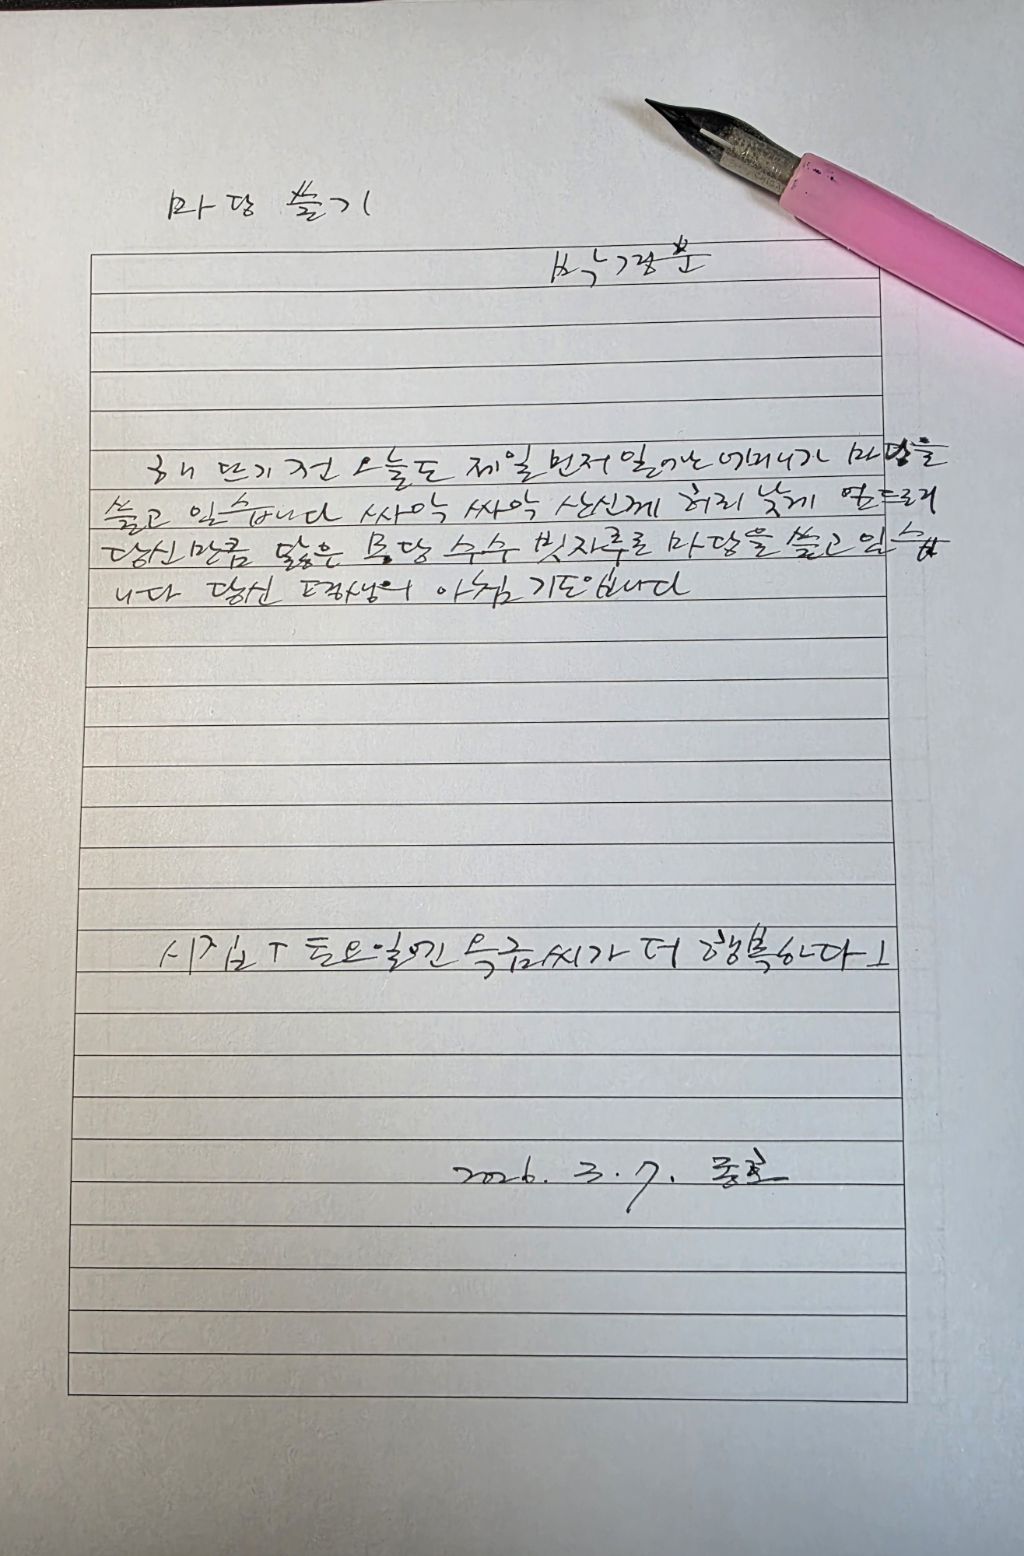 마당 쓸기
박경분
해 뜨기 전 오늘도 제일 먼저 일어난 어머니가 마당을
쓸고 있습니다 싸악 싸악 산신께 허리 낮게 엎드려
당신 만큼 닳은 몽당 수수 빗자루로 마당을 쓸고 있습
니다 당신 평생의 아침 기도입니다
시집ㄱ 토요일엔 옥금씨가 더 행복하다ㄴ
2026. 3. 7.